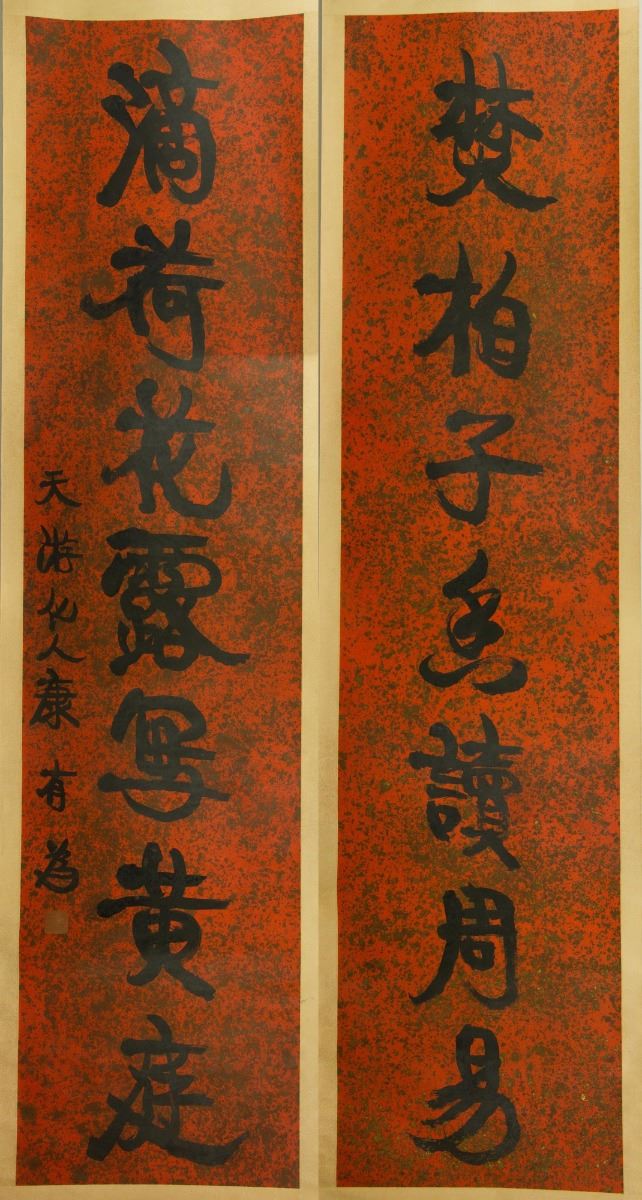 焚柏子香讀周易
滴荷花露寫黃庭
天游化人康有為